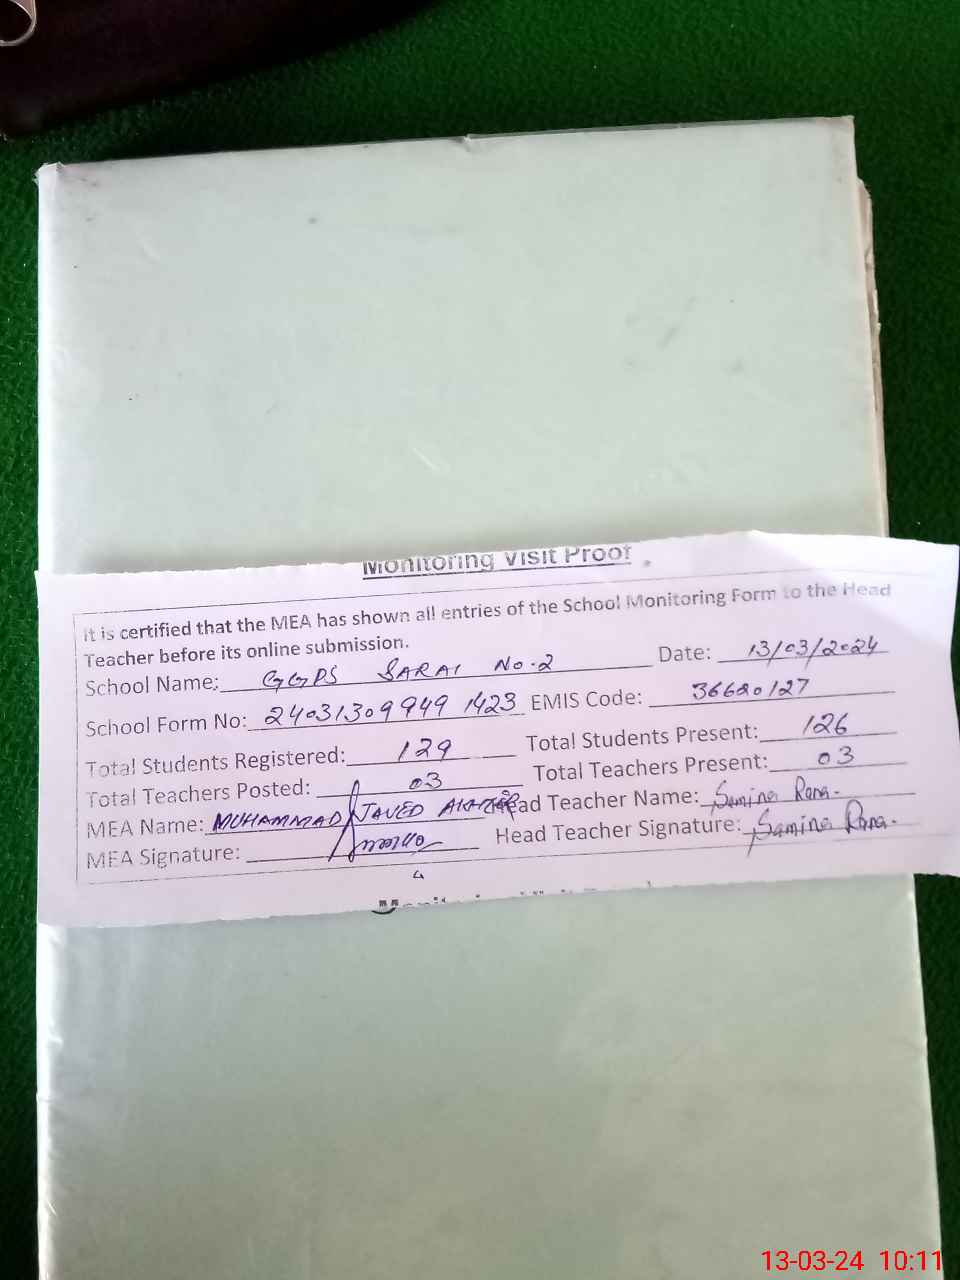 Monitoring Visit Proof
It is certified that the MEA has shown all entries of the School Monitoring Form to the Head
Teacher before its online submission.
School Name: GGPS SARAI NO.2 Date: 13/03/2024
School Form No: 24031309949 1423 EMIS Code: 36620127
Total Students Registered: 129 Total Students Present: 126
Total Teachers Posted: 03 Total Teachers Present: 03
MEA Name: MUHAMMAD JAVED AKHTAR Head Teacher Name: Samina Rana.
MEA Signature: Head Teacher Signature: Samina Rana.
13-03-24 10:11